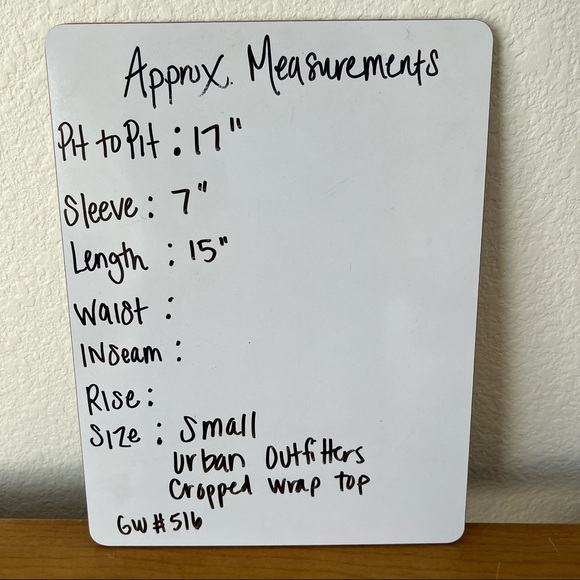 Approx. Measurements
Pit to Pit : 17"
Sleeve : 7"
Length : 15"
Waist :
INseam :
Rise :
Size : Small
Urban Outfitters
Cropped wrap top
GW#516